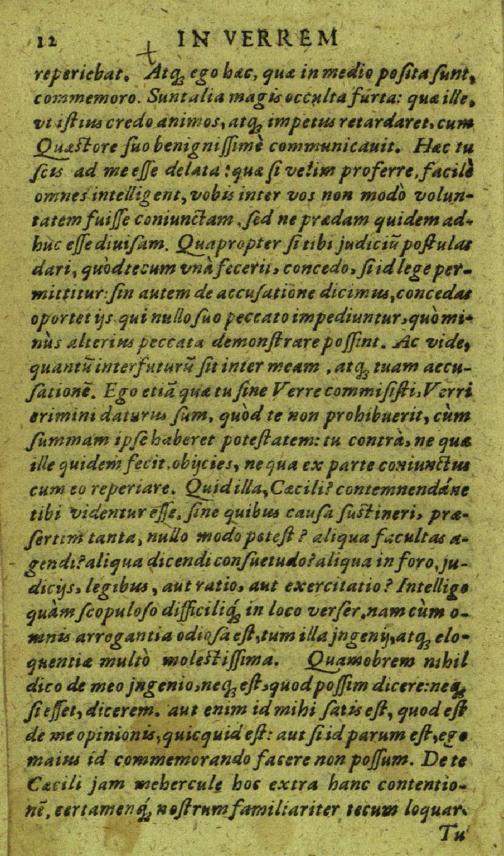 12 IN VERREM
reperiebat. Atq; ego hæc, quæ in medio posita sunt,
commemoro. Sunt alia magis occulta furta: quæ ille,
vt istius credo animos, atq; impetus retardaret, cum
Quæstore suo benignissimè communicauit. Hæc tu
scis ad me esse delata: quæ si velim proferre, facilè
omnes intelligent, vobis inter vos non modò volun-
tatem fuisse coniunctam, sed ne prædam quidem ad-
huc esse diuisam. Quapropter si tibi judiciū postulas
dari, quòd tecum vnà fecerit, concedo, si id lege per-
mittitur: sin autem de accusatione dicimus, concedas
oportet ijs qui nullo suo peccato impediuntur, quò mi-
nùs alterius peccata demonstrare possint. Ac vide,
quantū interfuturū sit inter meam, atq; tuam accu-
sationē. Ego etiā quæ tu sine Verre commisisti, Verri
crimini daturus sum, quòd te non prohibuerit, cùm
summam ipse haberet potestatem: tu contrà, ne quæ
ille quidem fecit, obijcies, ne qua ex parte coniunctus
cum eo reperiare. Quid illa, Cæcili? contemnendáne
tibi videntur esse, sine quibus causa sustineri, præ-
sertim tanta, nullo modo potest? aliqua facultas a-
gendi? aliqua dicendi consuetudo? aliqua in foro, ju-
dicijs, legibus, aut ratio, aut exercitatio? Intelligo
quàm scopuloso difficiliq; in loco verser. nam cùm o-
mnis arrogantia odiosa est, tum illa jngenij, atq; elo-
quentiæ multò molestissima. Quamobrem nihil
dico de meo jngenio, neq; est, quod possim dicere: neq;
si esset, dicerem. aut enim id mihi satis est, quod est
de me opinionis, quicquid est: aut si id parum est, ego
maius id commemorando facere non possum. De te
Cæcili jam mehercule hoc extra hanc contentio-
nē, certamenq; nostrum familiariter tecum loquar.
Tu